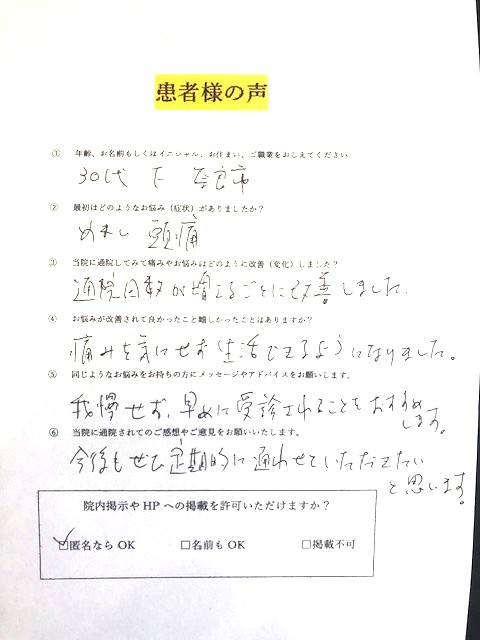 患者様の声
① 年齢、お名前もしくはイニシャル、お住まい、ご職業をおしえてください
30代 F 奈良市
② 最初はどのようなお悩み(症状)がありましたか?
めまい 頭痛
③ 当院に通院してみて痛みやお悩みはどのように改善(変化)しました?
通院回数が増えるごとに改善しました。
④ お悩みが改善されて良かったこと嬉しかったことはありますか?
痛みを気にせず生活できるようになりました。
⑤ 同じようなお悩みをお持ちの方にメッセージやアドバイスをお願いします。
我慢せず、早めに受診されることをおすすめ
します。
⑥ 当院に通院されてのご感想やご意見をお願いいたします。
今後もぜひ定期的に通わせていただきたい
と思います。
院内掲示やHPへの掲載を許可いただけますか?
☑匿名ならOK □名前もOK □掲載不可